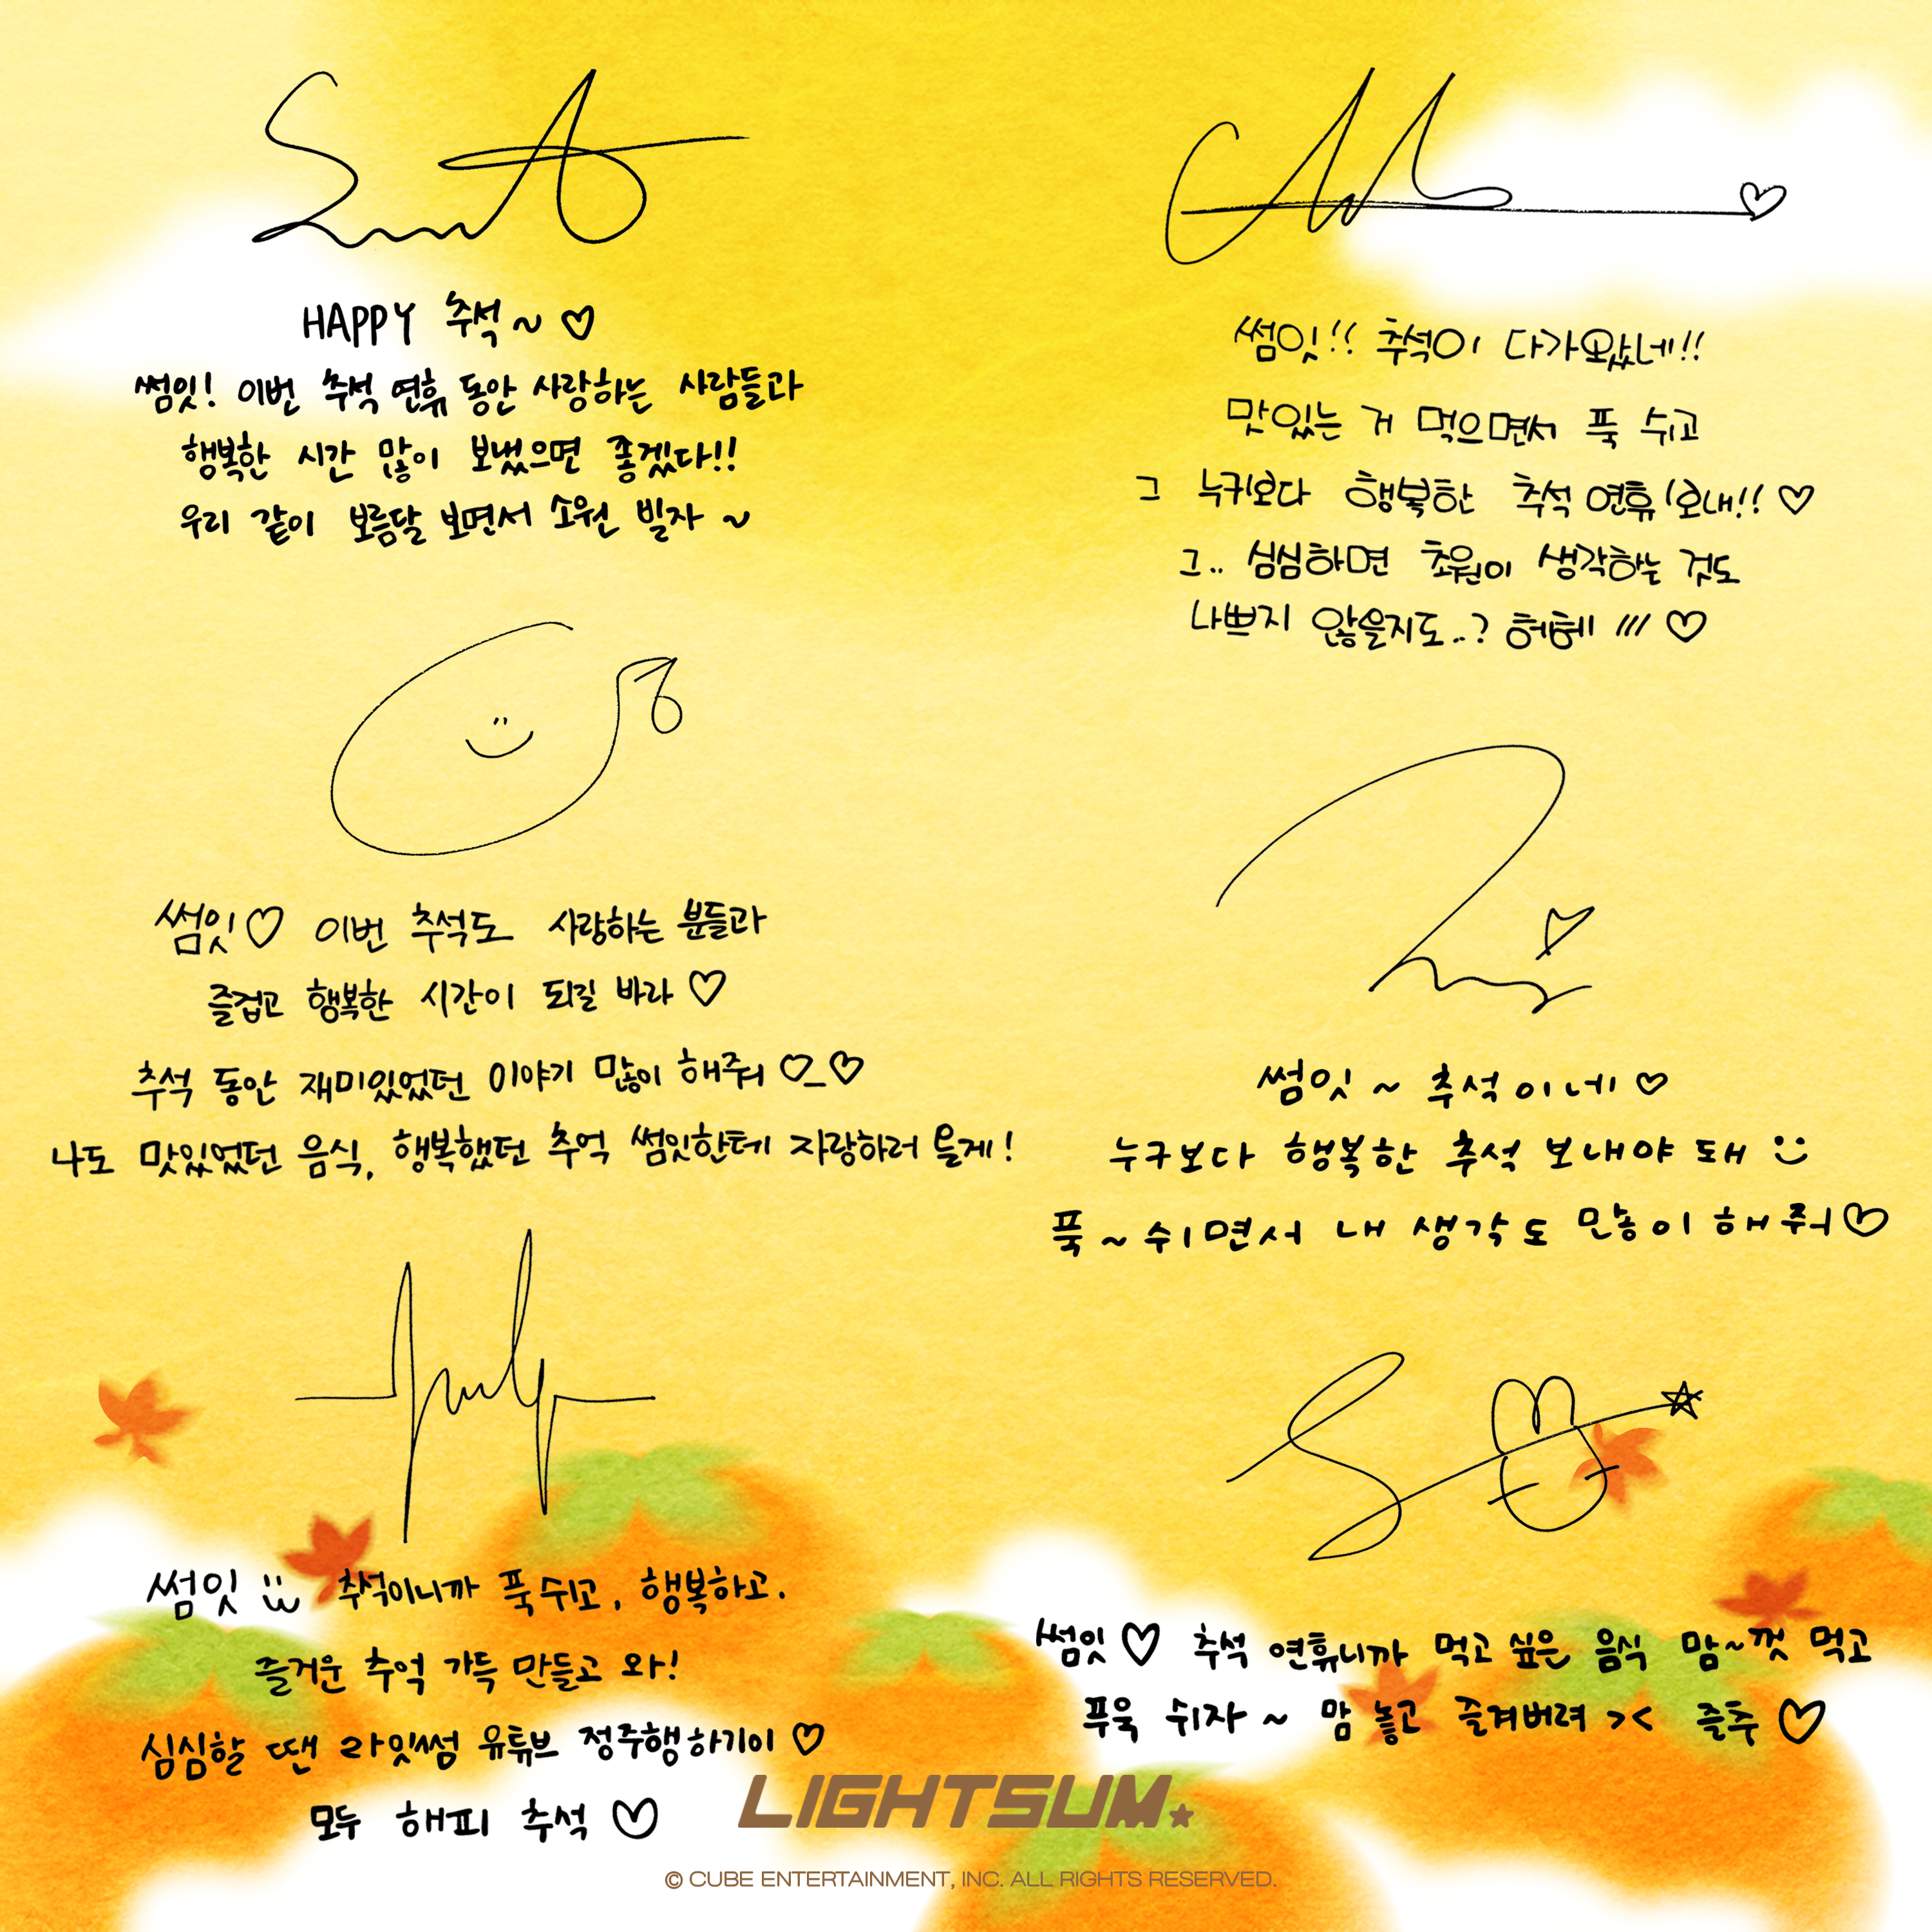 HAPPY 추석~ ♡
썸잇! 이번 추석 연휴 동안 사랑하는 사람들과
행복한 시간 많이 보냈으면 좋겠다!!
우리 같이 보름달 보면서 소원 빌자 ~
썸잇!! 추석이 다가왔네!!
맛있는 거 먹으면서 푹 쉬고
그 누구보다 행복한 추석 연휴 보내!! ♡
그.. 심심하면 초원이 생각하는 것도
나쁘지 않을지도..? 허헤 /// ♡
썸잇♡ 이번 추석도 사랑하는 분들과
즐겁고 행복한 시간이 되길 바라 ♡
추석 동안 재미있었던 이야기 많이 해줘 ♡_♡
나도 맛있었던 음식, 행복했던 추억 썸잇한테 자랑하러 올게!
썸잇 ~ 추석이네 ♡
누구보다 행복한 추석 보내야 돼 :)
푹 ~ 쉬면서 내 생각도 많이 해줘 ♡
July
썸잇 추석이니까 푹 쉬고, 행복하고.
즐거운 추억 가득 만들고 와!
심심할 땐 라잇썸 유튜브 정주행하기이 ♡
모두 해피 추석 ♡
썸잇 ♡ 추석 연휴니까 먹고 싶은 음식 맘~껏 먹고
푸욱 쉬자 ~ 맘 놓고 즐겨버려 >< 즐추 ♡
LIGHTSUM
© CUBE ENTERTAINMENT, INC. ALL RIGHTS RESERVED.